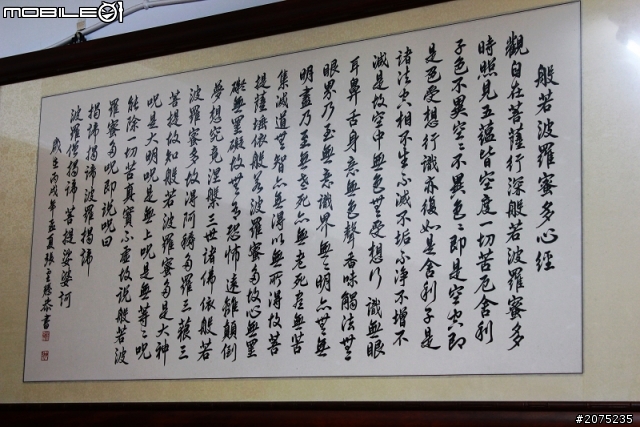 般若波羅蜜多心經
觀自在菩薩行深般若波羅蜜多
時照見五蘊皆空度一切苦厄舍利
子色不異空空不異色色即是空空即
是色受想行識亦復如是舍利子是
諸法空相不生不滅不垢不淨不增不
減是故空中無色無受想行識無眼
耳鼻舌身意無色聲香味觸法無
眼界乃至無意識界無無明亦無無
明盡乃至無老死亦無老死盡無苦
集滅道無智亦無得以無所得故菩
提薩埵依般若波羅蜜多故心無罣
礙無罣礙故無有恐怖遠離顛倒
夢想究竟涅槃三世諸佛依般若
波羅蜜多故得阿耨多羅三藐三
菩提故知般若波羅蜜多是大神
呪是大明呪是無上呪是無等等呪
能除一切苦真實不虛故說般若波
羅蜜多呪即說呪曰
揭諦揭諦波羅揭諦
波羅僧揭諦菩提娑婆訶
歲在丙戌年孟夏張恭書
mobile01
#2075235